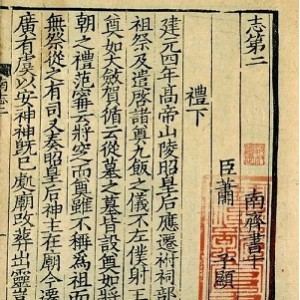 志第二　南齊書十
臣蕭　子顯
禮下
建元四年高帝山陵昭皇后應遷祔祠部
祖祭及遣啓諸奠九飯之儀不左僕射王
奠如大斂賀循云從墓之墓皆設奠如將
朝之禮范甯云將窆而奠雖不稱爲祖而
無祭從之有司又奏昭皇后神主在廟今遷
廣有虞以安神神既巳處廟改葬出靈豈